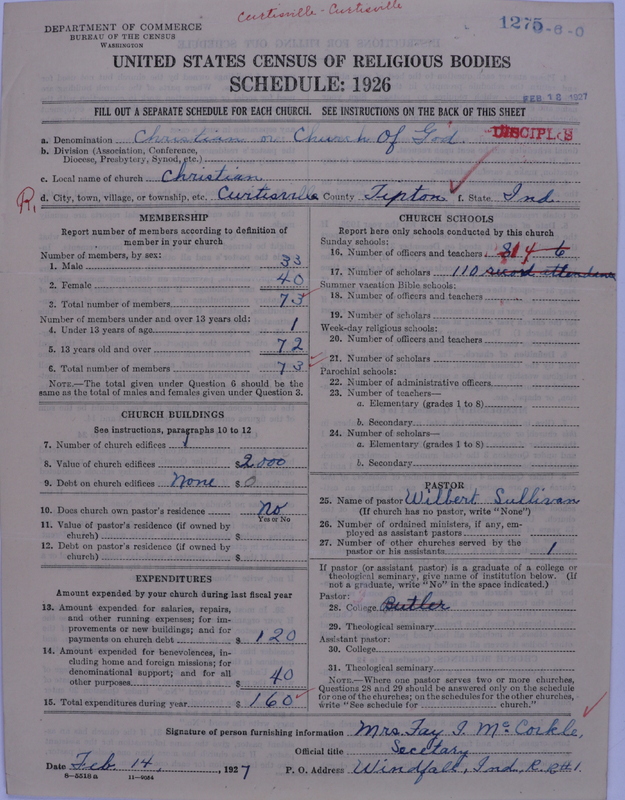 Curtisville - Curtisville
DEPARTMENT OF COMMERCE
BUREAU OF THE CENSUS
WASHINGTON
1275
UNITED STATES CENSUS OF RELIGIOUS BODIES
SCHEDULE: 1926
FEB 18 1927
FILL OUT A SEPARATE SCHEDULE FOR EACH CHURCH. SEE INSTRUCTIONS ON THE BACK OF THIS SHEET
a. Denomination Christian or Church Of God. DISCIPLES
b. Division (Association, Conference,
Diocese, Presbytery, Synod, etc.)
c. Local name of church Christian
R. d. City, town, village, or township, etc. Curtisville County Tipton f. State Ind.
MEMBERSHIP
Report number of members according to definition of
member in your church
Number of members, by sex:
1. Male 33
2. Female 40
3. Total number of members 73
Number of members under and over 13 years old:
4. Under 13 years of age 1
5. 13 years old and over 72
6. Total number of members 73
NOTE.—The total given under Question 6 should be the
same as the total of males and females given under Question 3.
CHURCH BUILDINGS
See instructions, paragraphs 10 to 12
7. Number of church edifices 1
8. Value of church edifices $2,000
9. Debt on church edifices None $0
10. Does church own pastor's residence No
Yes or No
11. Value of pastor's residence (if owned by
church) $
12. Debt on pastor's residence (if owned by
church) $
EXPENDITURES
Amount expended by your church during last fiscal year
13. Amount expended for salaries, repairs,
and other running expenses; for im-
provements or new buildings; and for
payments on church debt $120
14. Amount expended for benevolences, in-
cluding home and foreign missions; for
denominational support; and for all
other purposes $40
15. Total expenditures during year $160
CHURCH SCHOOLS
Report here only schools conducted by this church
Sunday schools:
16. Number of officers and teachers 8 14 6
17. Number of scholars 110 record attendance
Summer vacation Bible schools:
18. Number of officers and teachers
19. Number of scholars
Week-day religious schools:
20. Number of officers and teachers
21. Number of scholars
Parochial schools:
22. Number of administrative officers
23. Number of teachers—
a. Elementary (grades 1 to 8)
b. Secondary
24. Number of scholars—
a. Elementary (grades 1 to 8)
b. Secondary
PASTOR
25. Name of pastor Wilbert Sullivan
(If church has no pastor, write "None")
26. Number of ordained ministers, if any, em-
ployed as assistant pastors
27. Number of other churches served by the
pastor or his assistants 1
If pastor (or assistant pastor) is a graduate of a college or
theological seminary, give name of institution below. (If
not a graduate, write "No" in the space indicated.)
Pastor:
28. College Butler
29. Theological seminary
Assistant pastor:
30. College
31. Theological seminary
NOTE.—Where one pastor serves two or more churches,
Questions 28 and 29 should be answered only on the schedule
for one of the churches; on the schedules for the other churches,
write "See schedule for church."
Signature of person furnishing information Mrs. Fay I. McCorkle,
Official title Secetary
Date Feb 14, 1927 P. O. Address Windfall, Ind, R. R#1.
8-5518 a 11-9064